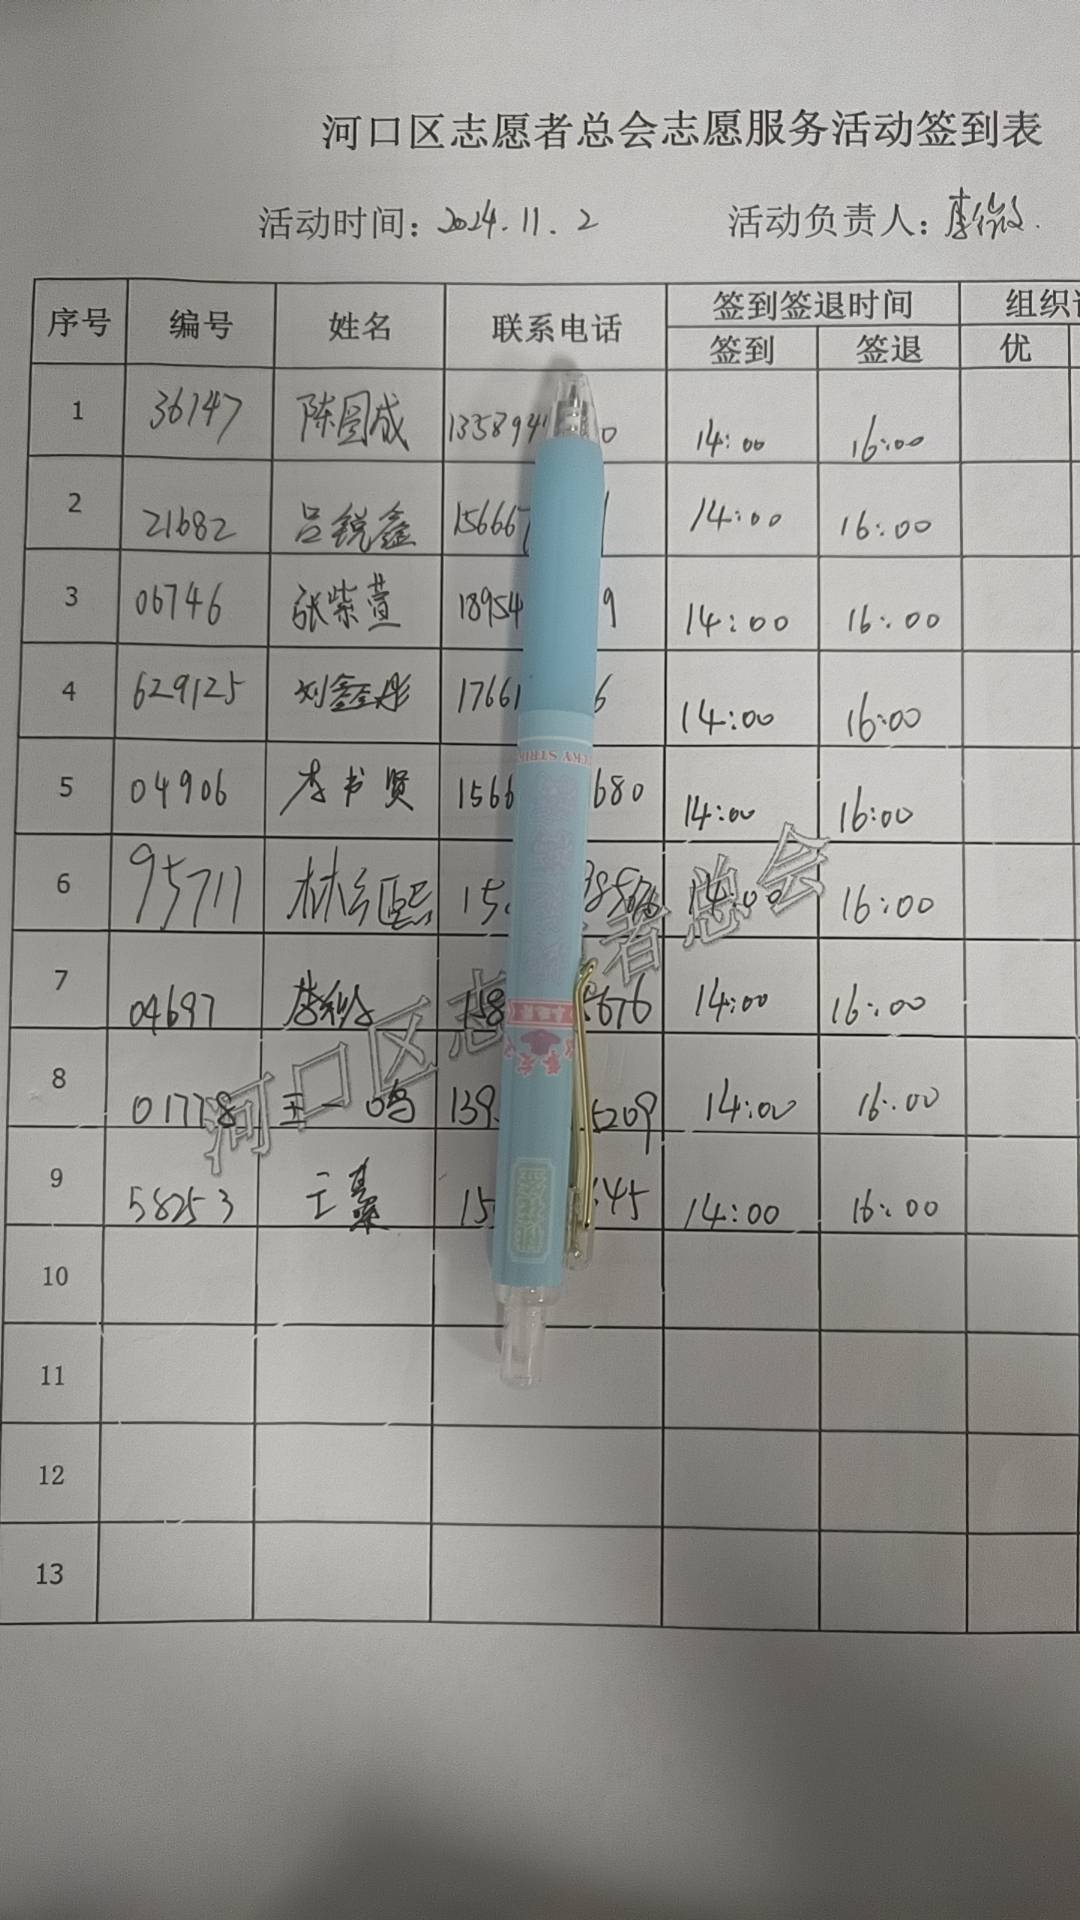 河口区志愿者总会志愿服务活动签到表
活动时间：2024.11.2 活动负责人：
序号 编号 姓名 联系电话 签到签退时间 组织
签到 签退 优
1 36147 陈国成 1358941 0 14:00 16:00
2 21682 吕锐鑫 15666 1 14:00 16:00
3 06746 张紫萱 18954 9 14:00 16:00
4 629125 刘鑫彤 17661 6 14:00 16:00
5 04906 李书贤 1566 680 14:00 16:00
6 95711 林 熙 15 14:00 16:00
7 04697 158 5676 14:00 16:00
8 01778 王一鸣 139 5209 14:00 16:00
9 58253 王 15 45 14:00 16:00
10
11
12
13
河口区志 者总会
CKY STRI